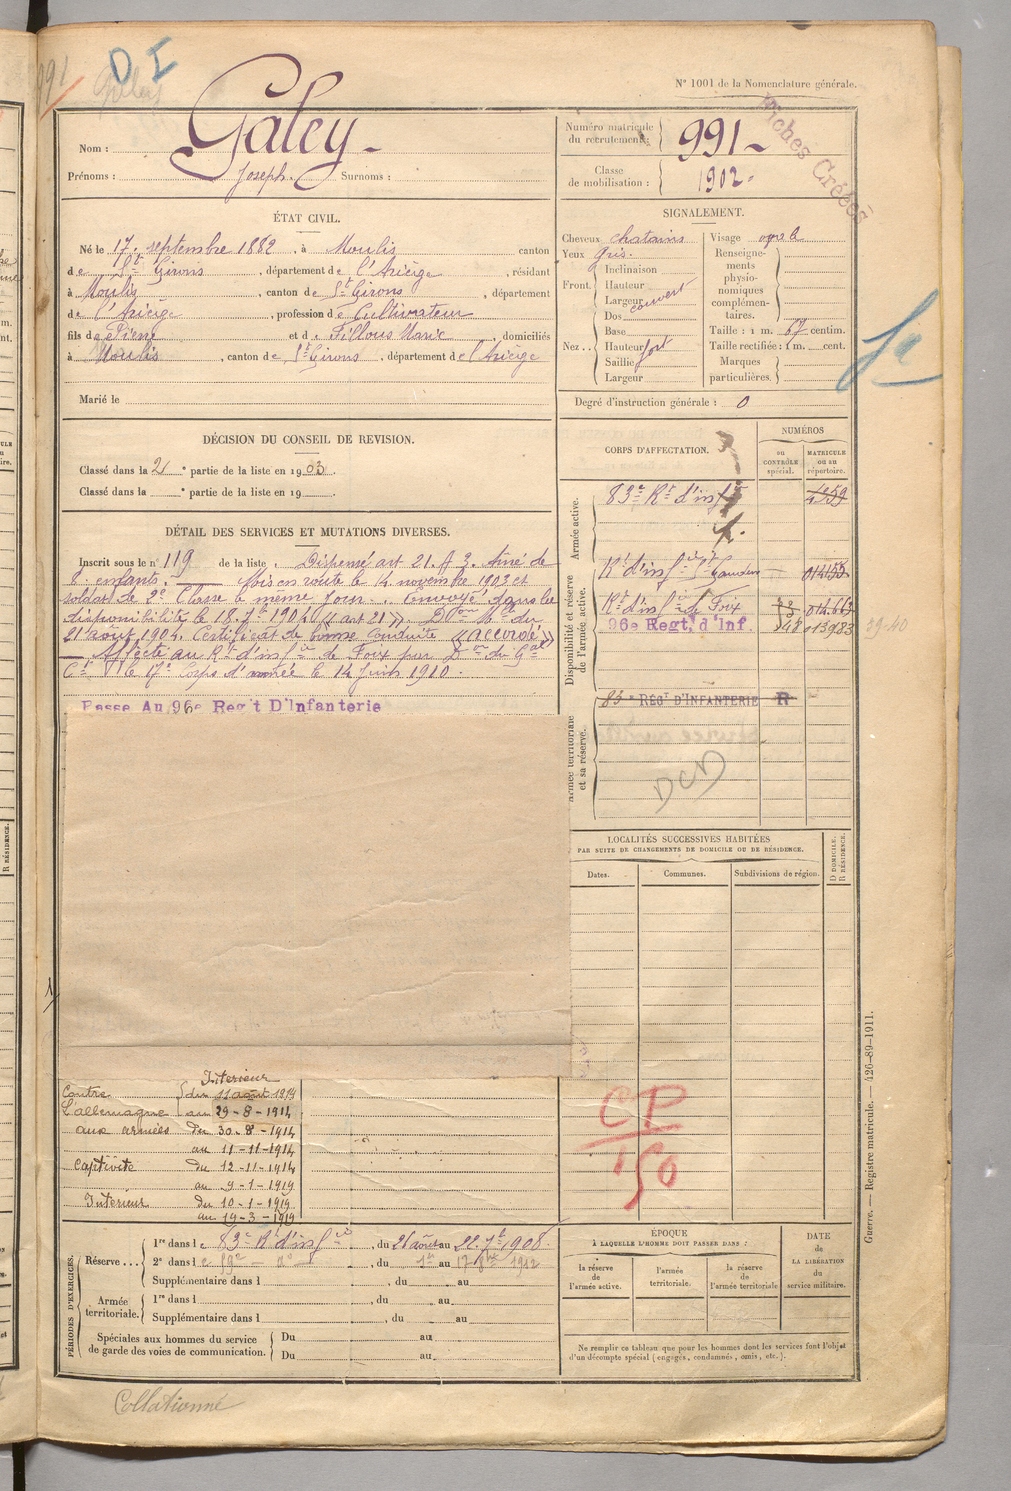 991
D I
Galey
N° 1001 de la Nomenclature générale.
Fiches Créées
Nom : Galey
Prénoms : Joseph. Surnoms :
Numéro matricule du recrutement : 991
Classe de mobilisation : 1902.
ÉTAT CIVIL.
Né le 17 septembre 1882, à Moulis canton
de St Girons, département de l'Ariège, résidant
à Moulis, canton de St Girons, département
de l'Ariège, profession de Cultivateur
fils de Pierre et de Fillous Marie, domiciliés
à Moulis, canton de St Girons, département de l'Ariège
Marié le
SIGNALEMENT.
Cheveux chatains
Yeux gris.
Front.
Inclinaison
Hauteur
Largeur couvert
Nez..
Dos
Base
Hauteur fort
Saillie
Largeur
Visage ovale
Renseignements physionomiques complémentaires.
Taille : 1 m. 67 centim.
Taille rectifiée : 1 m. cent.
Marques particulières.
Degré d'instruction générale : 0
DÉCISION DU CONSEIL DE REVISION.
Classé dans la 2e partie de la liste en 1903.
Classé dans la e partie de la liste en 19
CORPS D'AFFECTATION.
NUMÉROS
au CONTRÔLE spécial.
MATRICULE ou au répertoire.
Armée active.
83e Rt d'inf
4259
Disponibilité et réserve de l'armée active.
Rt d'infie St Gaudens 01455
Rt d'infie de Foix 01466
96e Regt. d'Inf. 348 013983 39-40
Armée territoriale et sa réserve.
83e REGt D'INFANTERIE R
DCD
DÉTAIL DES SERVICES ET MUTATIONS DIVERSES.
Inscrit sous le n° 119 de la liste. Dispensé art 21. § 3. Aîné de
8 enfants. Mis en route le 14 novembre 1903 et
soldat de 2e Classe le même jour. Envoyé dans la
disponibilité le 18 7bre 1904 (art 21). Don Mlle du
21 août 1904. Certificat de bonne conduite "accordé"
Affecté au Rt d'infie de Foix par Don du Gal
Ct le 17e Corps d'armée le 14 juin 1910.
Passe Au 96e Reg't D'Infanterie
LOCALITÉS SUCCESSIVES HABITÉES
PAR SUITE DE CHANGEMENTS DE DOMICILE OU DE RÉSIDENCE.
Dates. Communes. Subdivisions de région.
D DOMICILE.
R RÉSIDENCE.
Intérieur
Contre du 11 août 1914
L'allemagne au 29-8-1914
aux armées du 30-8-1914
au 11-11-1914
Captivité du 12-11-1914
au 9-1-1919
Intérieur du 10-1-1919
au 19-3-1919
CP
150
PÉRIODES D'EXERCICES.
Réserve...
1re dans le 83e Rt d'infie, du 26 août au 22 7bre 1908.
2e dans le 59e, du 1er au 17 8bre 1912
Supplémentaire dans l , du au
Armée territoriale.
1re dans l , du au
Supplémentaire dans l , du au
Spéciales aux hommes du service de garde des voies de communication.
Du au
Du au
ÉPOQUE
À LAQUELLE L'HOMME DOIT PASSER DANS :
la réserve de l'armée active.
l'armée territoriale.
la réserve de l'armée territoriale
DATE de LA LIBÉRATION du service militaire.
Ne remplir ce tableau que pour les hommes dont les services font l'objet
d'un décompte spécial (engagés, condamnés, omis, etc.).
Guerre. — Registre matricule. — 426-89-1911.
Collationné